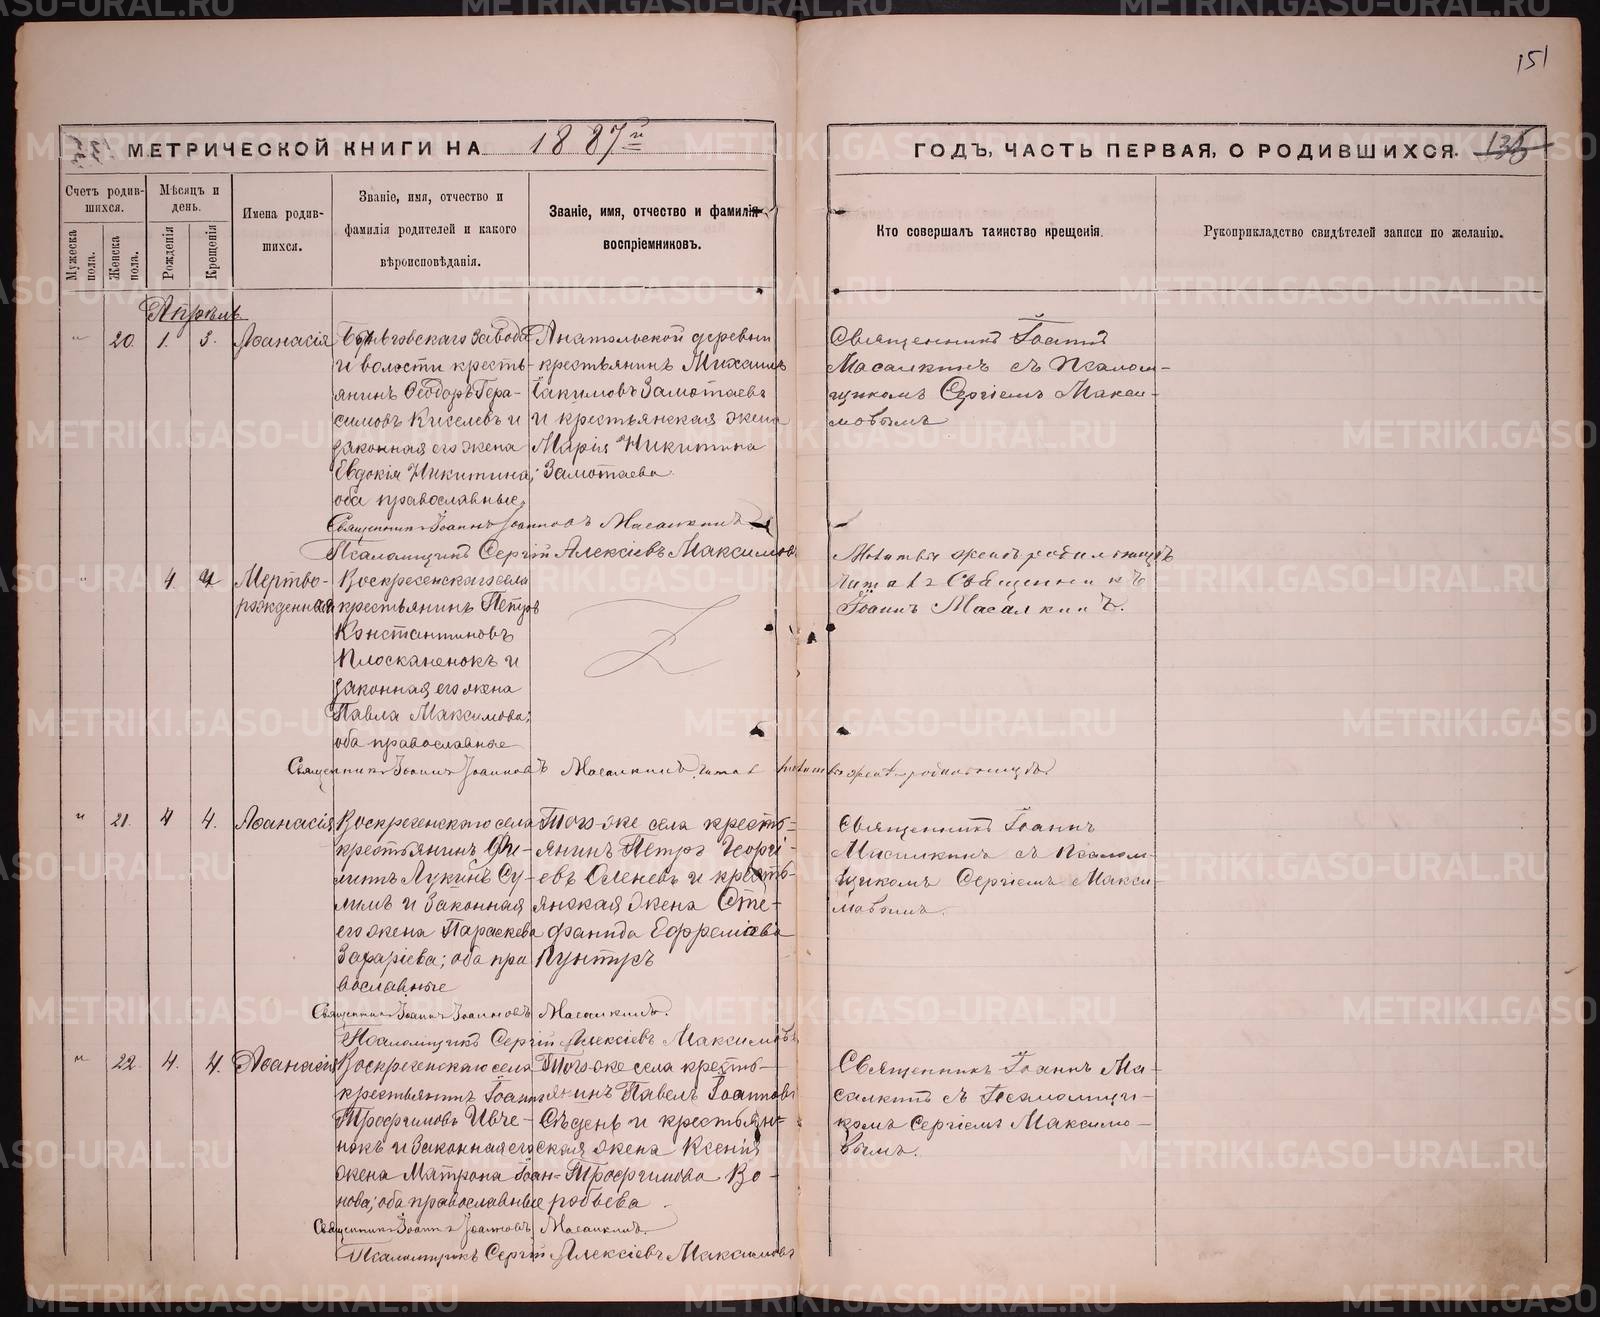 151
МЕТРИЧЕСКОЙ КНИГИ НА 1887 г
ГОДЪ, ЧАСТЬ ПЕРВАЯ, О РОДИВШИХСЯ.
Счетъ родившихся.
Мужеска пола.
Женска пола.
Мѣсяцъ и день.
Рожденія
Крещенія
Имена родив-
шихся.
Званіе, имя, отчество и
фамилія родителей и какого
вѣроисповѣданія.
Званіе, имя, отчество и фамилія
воспріемниковъ.
Кто совершалъ таинство крещенія.
Рукоприкладство свидѣтелей записи по желанію.
Апрѣль
" 20. 1. 3. Аѳанасія
завода
и волости кресть-
янинъ Ѳеодоръ Гера-
симовъ Киселевъ и
законная его жена
Евдокія Никитина;
оба православные,
Анатольской деревни
крестьянинъ Михаилъ
Іакимовъ Замотаевъ
и крестьянская жена
Марія Никитина
Замотаева.
Священникъ Іоаннъ
Масалкинъ съ Псалом-
щикомъ Сергіемъ Макси-
мовымъ
Священникъ Іоаннъ Іоанновъ Масалкинъ
Псаломщикъ Сергій Алексіевъ Максимовъ
" 4. 4 Мертво-
рожденная
Воскресенскаго села
крестьянинъ Петръ
Константиновъ
Плосканенокъ и
законная его жена
Павла Максимова;
оба православные
Молитвы женѣ родильницѣ
читалъ Священникъ
Іоаннъ Масалкинъ.
Священникъ Іоаннъ Іоанновъ Масалкинъ читал молитвы женѣ родильницѣ
" 21. 4 4. Аѳанасія
Воскресенскаго села
крестьянинъ Фи-
липпъ Лукинъ Су-
лимъ и законная
его жена Параскева
Захаріева; оба пра
вославные
Того-же села кресть-
янинъ Петръ Георгі-
евъ Оленевъ и кресть-
янская жена Сте-
фанида Ефреміева
Пунтусъ
Священникъ Іоаннъ
Масалкинъ съ Псалом-
щикомъ Сергіемъ Макси-
мовымъ.
Священникъ Іоаннъ Іоанновъ Масалкинъ.
Псаломщикъ Сергій Алексіевъ Максимовъ
" 22. 4. 4. Аѳанасія
Воскресенскаго села
крестьянинъ Іоаннъ
Трофимовъ Ивче-
нокъ и законная его
жена Матрона Іоан-
нова; оба православные
Того-же села кресть-
янинъ Павелъ Іоанновъ
Сѣденъ и крестьян-
ская жена Ксенія
Трофимова Во-
робьева
Священникъ Іоаннъ Ма-
салкинъ съ Псаломщи-
комъ Сергіемъ Максимо-
вымъ.
Священникъ Іоаннъ Іоанновъ Масалкинъ.
Псаломщикъ Сергій Алексіевъ Максимовъ
METRIKI.GASO-URAL.RU